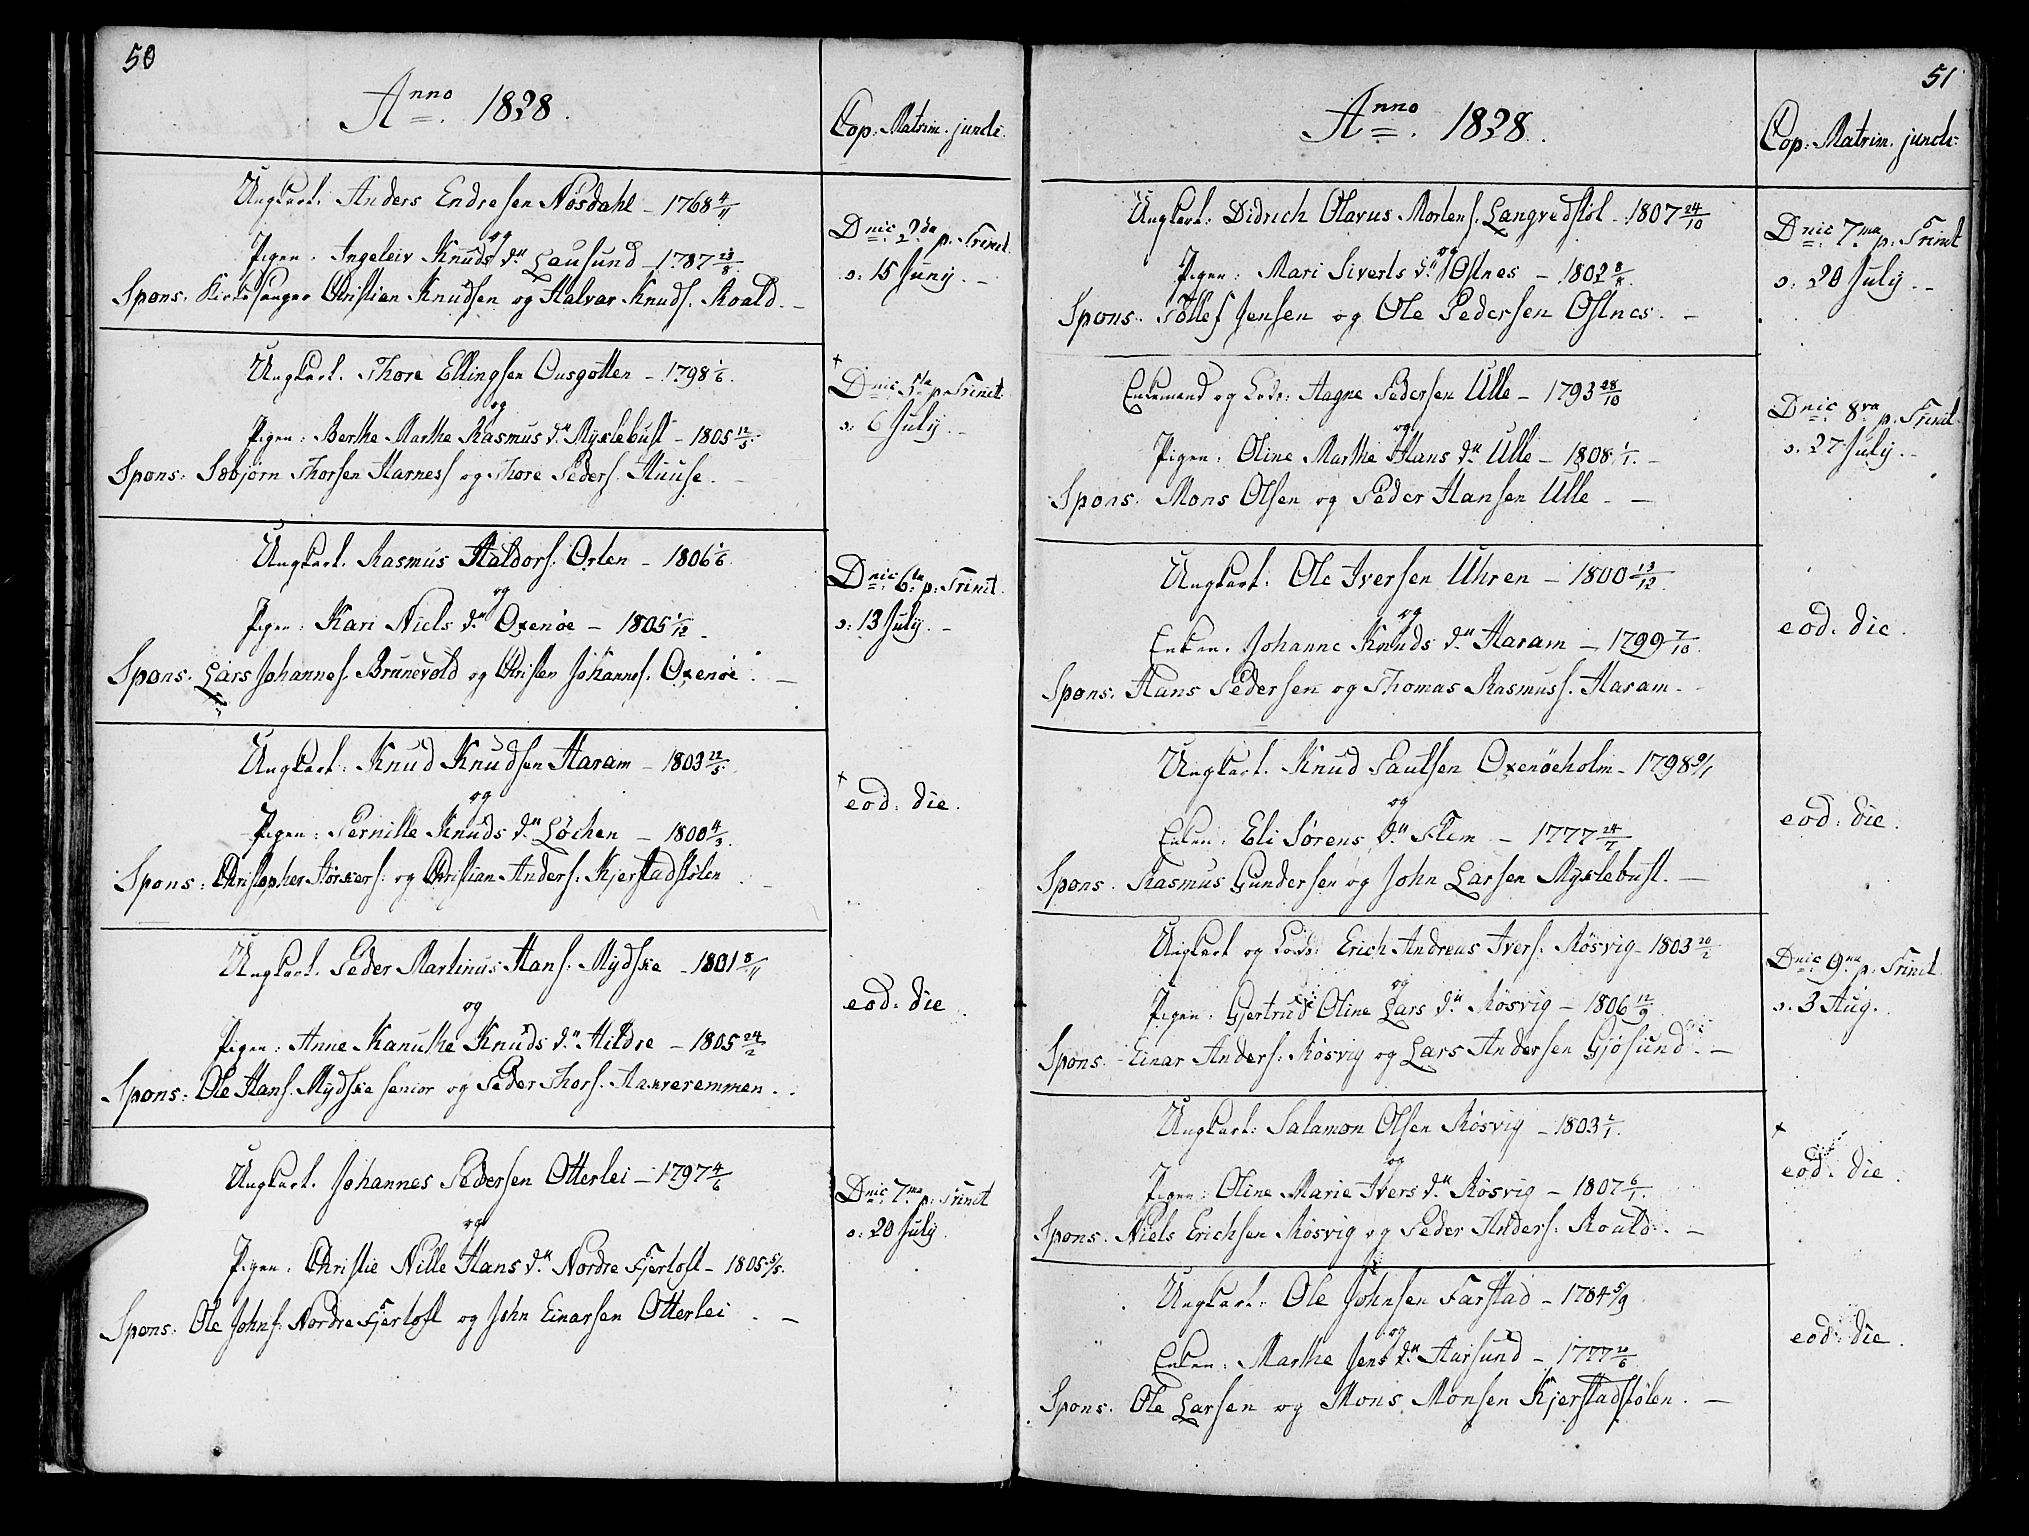 50
Anno 1828.
Cop: Matrim. juncti:
Ungkarl. Anders Endresen Nøsdahl - 1768 4/11
og
Pigen. Ingeleiv Knuds dr. Lausund - 1787 23/8.
Spons: Kirkesanger Christian Knudsen og Halvar Knuds. Roald. -
Dnic 2da p. Trinit.
o: 15 Juny. -
Ungkarl. Thore Ellingsen Ousgotten - 1798 1/6.
og
Pigen: Berthe Marthe Rasmus dr. Myklebust - 1805 12/5.
Spons: Sæbjørn Thorsen Harnes og Thore Peders. Huuse. -
+
Dnic 5ta p. Trinit.
o: 6 July. -
Ungkarl. Rasmus Haldors. Orten - 1806 1/6.
og
Pigen: Kari Niels dr. Oxenøe - 1805 1/12.
Spons. Lars Johannes. Brunevold og Christen Johannes. Oxenøe. -
Dnic 6ta p: Trinit.
o: 13 July. -
Ungkarl: Knud Knudsen Haram - 1803 22/5.
og
Pigen: Pernille Knuds dr. Løchen - 1800 11/3.
Spons: Christopher og Christian Anders: Kjerstadstølen. -
+
eod: die.
Ungkarl. Peder Martinus Hans: Mydske - 1801 8/11
og
Pigen: Anne Kanutke Knuds dr. Hildre - 1805 24/2
Spons: Ole Hans. Mydske senior og Peder Thors. Aakreremmen. -
eod: die
Ungkarl. Johannes Pedersen Otterlei - 1797 4/6
og
Pigen. Christie Nille Hans dr. Nordre Fjertoft - 1805 5/5.
Spons: Ole Johns: Nordre Fjertoft og John Einarsen Otterlei. -
Dnic 7ma p: Trinit
o: 20 July.
51
Anno 1828.
Cop: Matrim. juncti:
Ungkarl: Didrich Olavus Mortens. Langvedstøl - 1807 24/10
og
Pigen: Mari Siverts dr. Østnes - 1802 8/8.
Spons. Tollef Jensen og Ole Pedersen Østnes. -
Dnic 7ma p: Trinit
o: 20 July. -
Enkemand og Lods: Aagne Pedersen Ulle - 1793 28/10
og
Pigen: Oline Marthe Hans dr. Ulle - 1808 1/1. -
Spons: Mons Olsen og Peder Hansen Ulle. -
Dnic 8va p. Trinit.
o: 27 July. -
Ungkarl: Ole Iversen Uhren - 1800 13/12.
og
Enken. Johanne Knuds dr. Haram - 1799 7/10.
Spons: Hans Pedersen og Thomas Rasmuss. Haram. -
eod: die.
Ungkarl. Knud Paulsen Oxenøeholm - 1798 9/1
og
Enken: Eli Sørens dr. Flem - 1777 24/7
Spons. Rasmus Gundersen og John Larsen Myklebust. -
eod: die.
Ungkarl og Lods: Erich Andreas Ivers: Røsvig - 1803 20/2
og
Pigen: Gjertrud Oline Lars dr. Røsvig - 1806 12/9.
Spons: Einar Anders: Røsvig og Lars Andersen Gjøsund. -
Dnic 9na p: Trinit.
o: 3 Aug.
Ungkarl: Salamon Olsen Røsvig - 1803 2/1.
og
Pigen: Oline Marie Ivers dr. Røsvig - 1807 6/1.
Spons. Niels Erichsen Røsvig og Peder Anders: Roald. -
+
eod: die.
Ungkarl: Ole Johnsen Farstad - 1784 5/9.
og
Enken: Marthe Jens dr. Aarsund - 1777 20/6.
Spons. Ole Larsen og Mons Monsen Kjerstadstølen. -
eod: die.